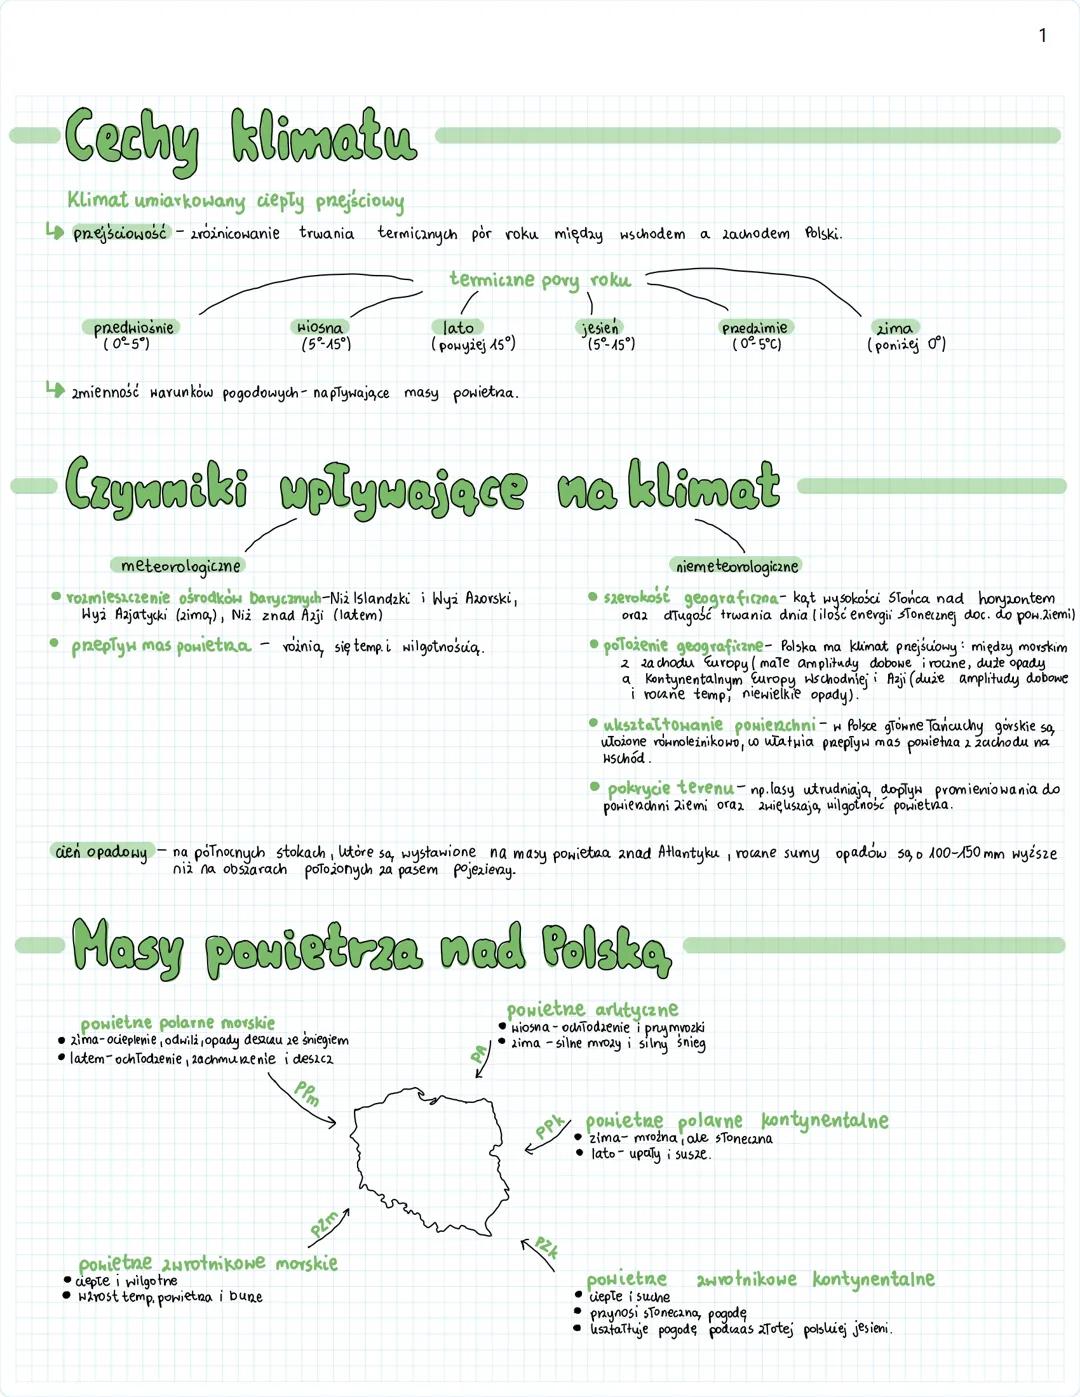 1
Cechy klimatu
Klimat umiarkowany ciepły przejściowy
przejściowość - zróżnicowanie trwania termicznych pór roku między wschodem a zachodem Polski.
termiczne pory roku
przedwiośnie
(0°-5°)
wiosna
(5°-15°)
lato
(powyżej 15°)
jesień
(5°-15°)
przedzimie
(0°-5°C)
zima
(poniżej 0°)
zmienność warunków pogodowych - napływające masy powietrza.
Czynniki wpływające na klimat
meteorologiczne
rozmieszczenie ośrodków barycznych - Niż Islandzki i Wyż Azorski,
Wyż Azjatycki (zimą), Niż znad Azji (latem)
przepływ mas powietrza - różnią się temp. i wilgotnością.
niemeteorologiczne
szerokość geograficzna - kąt wysokości Słońca nad horyzontem
oraz długość trwania dnia (ilość energii słonecznej doc. do pow. Ziemi)
położenie geograficzne - Polska ma klimat przejściowy: między morskim
z zachodu Europy (małe amplitudy dobowe i roczne, duże opady
a kontynentalnym Europy Wschodniej i Azji (duże amplitudy dobowe
i roczne temp; niewielkie opady).
ukształtowanie powierzchni - w Polsce główne łańcuchy górskie są
ułożone równoleżnikowo, co ułatwia przepływ mas powietrza z zachodu na
wschód.
pokrycie terenu - np. lasy utrudniają dopływ promieniowania do
powierzchni ziemi oraz zwiększają wilgotność powietrza.
cień opadowy - na północnych stokach, które są wystawione na masy powietrza znad Atlantyku, roczne sumy opadów są o 100-150 mm wyższe
niż na obszarach położonych za pasem pojezierzy.
Masy powietrza nad Polską
powietrze polarne morskie
zima - ocieplenie, odwilż, opady deszczu ze śniegiem
latem - ochłodzenie, zachmurzenie i deszcz
PPm
powietrze arktyczne
wiosna - ochłodzenie i przymrozki
zima - silne mrozy i silny śnieg
PA
PPk
powietrze polarne kontynentalne
zima - mroźna, ale słoneczna
lato - upały i susze.
PZm
powietrze zwrotnikowe morskie
ciepłe i wilgotne
wzrost temp. powietrza i burze
PZk
powietrze zwrotnikowe kontynentalne
ciepłe i suche
przynosi słoneczną pogodę
kształtuje pogodę podczas złotej polskiej jesieni.